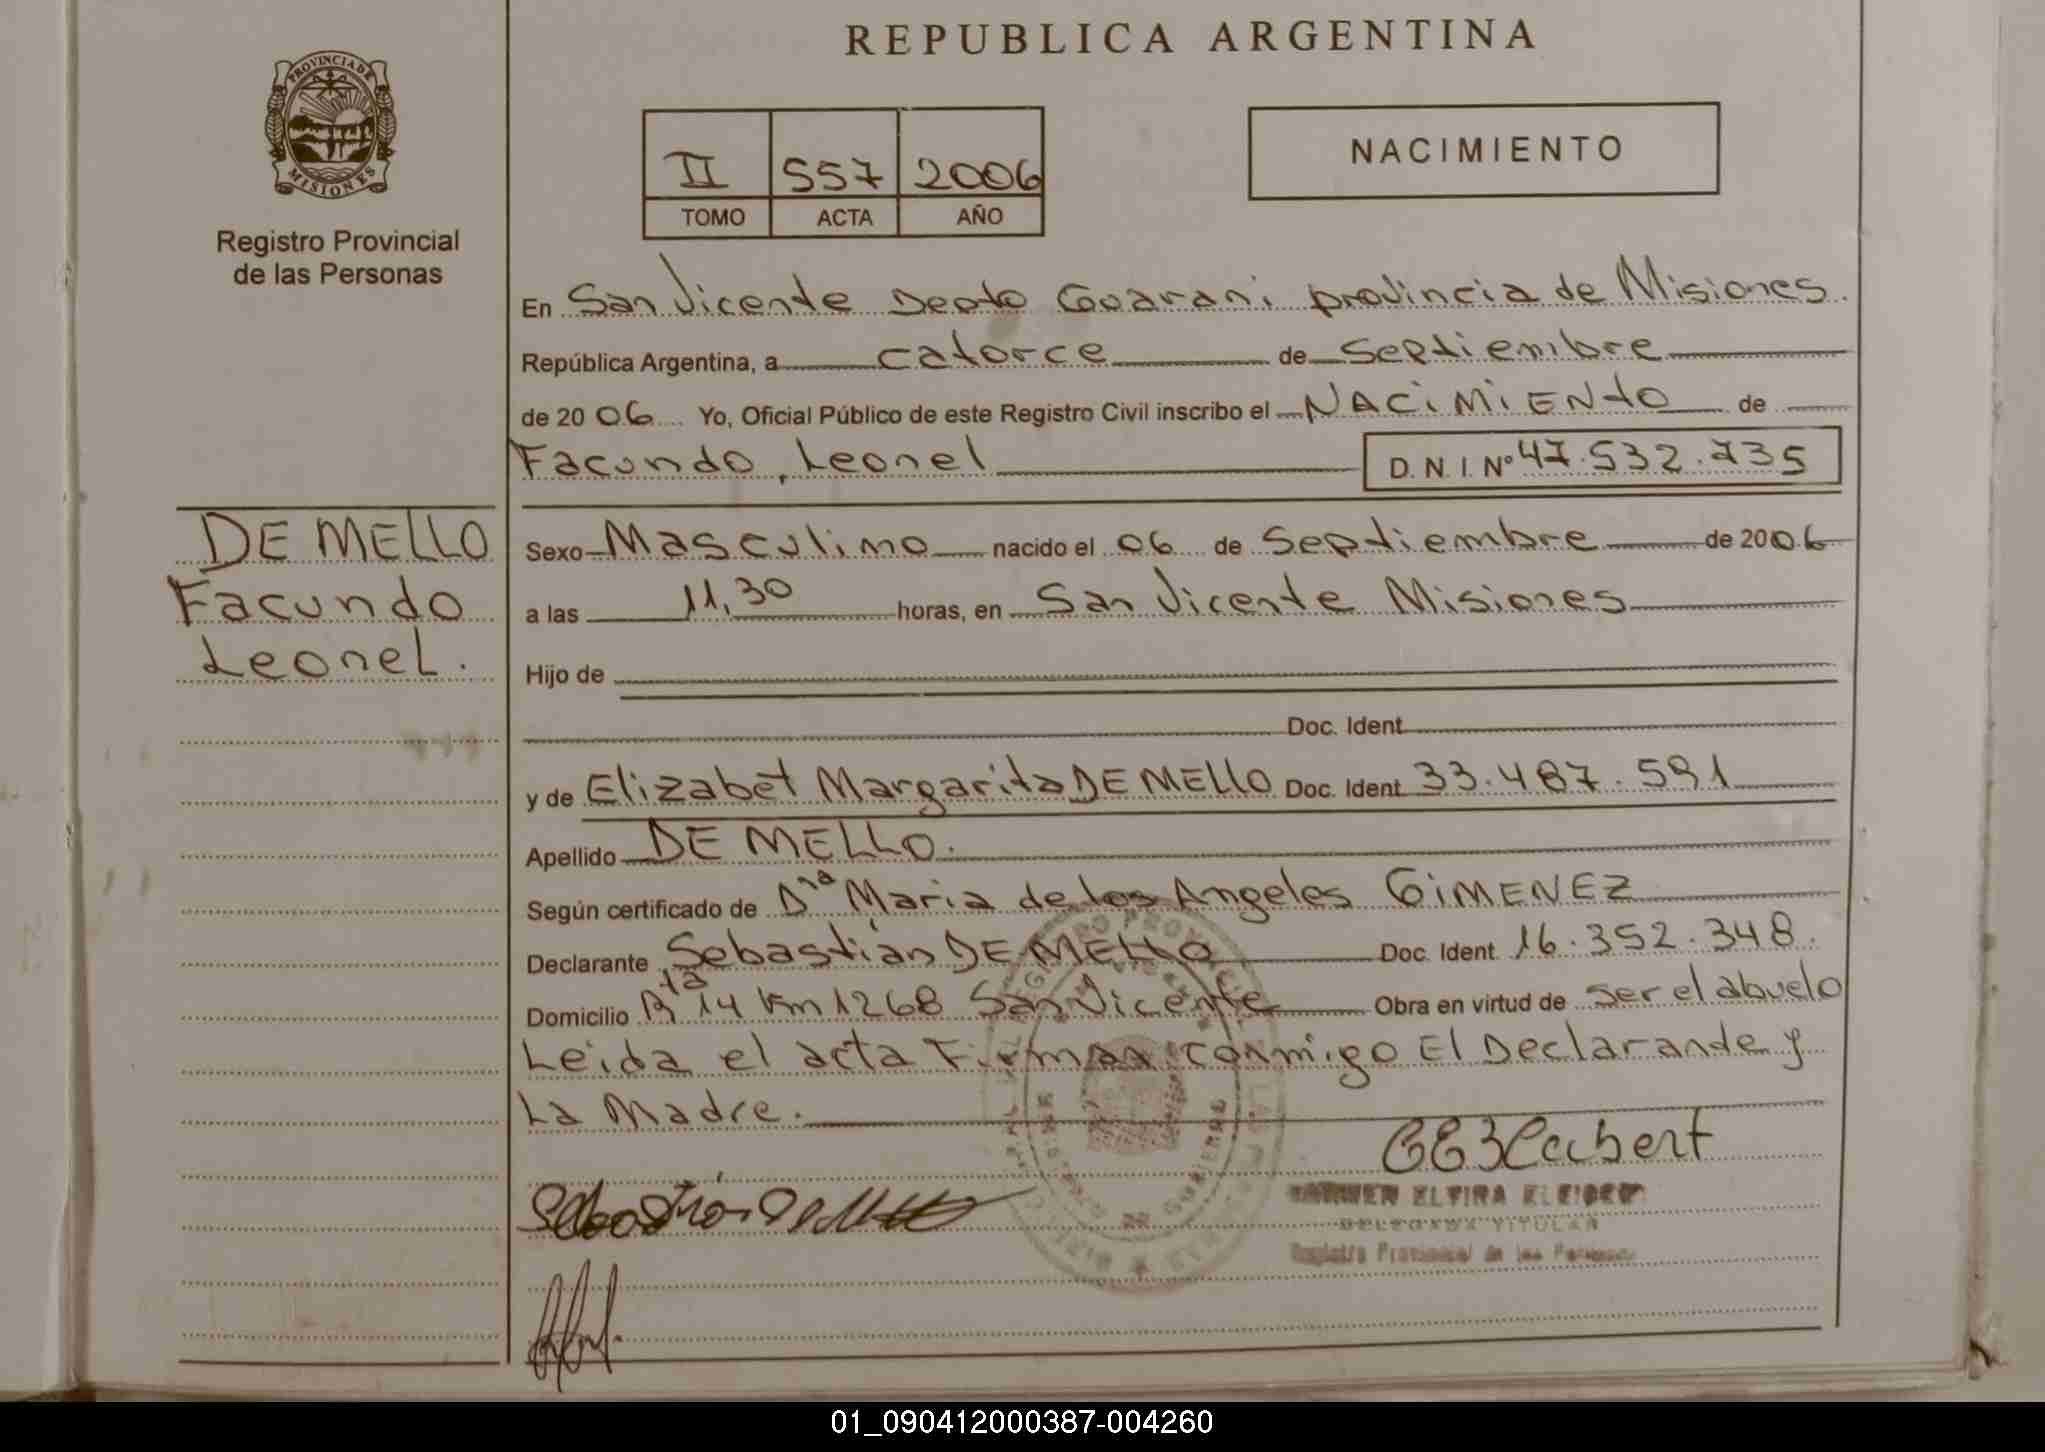 REPUBLICA ARGENTINA
PROVINCIA DE
MISIONES
Registro Provincial
de las Personas
II 557 2006
TOMO ACTA AÑO
NACIMIENTO
En San Vicente Depto Guarani provincia de Misiones
República Argentina, a catorce de Septiembre
de 2006 Yo, Oficial Público de este Registro Civil inscribo el NACIMIENTO de
Facundo, Leonel D. N. I. Nº 47.532.735
DE MELLO
Facundo
Leonel.
Sexo Masculino nacido el 06 de Septiembre de 2006
a las 11,30 horas, en San Vicente Misiones
Hijo de
Doc. Ident
y de Elizabet Margarita DE MELLO Doc. Ident 33.487.591
Apellido DE MELLO.
Según certificado de Dra Maria de los Angeles GIMENEZ
Declarante Sebastián DE MELLO Doc. Ident. 16.352.348.
Domicilio Rta 14 Km 1268 San Vicente Obra en virtud de ser el abuelo
Leida el acta Firman conmigo El Declarande y
La Madre.
Sebastián De Mello
Registro Provincial de las Personas
01_090412000387-004260